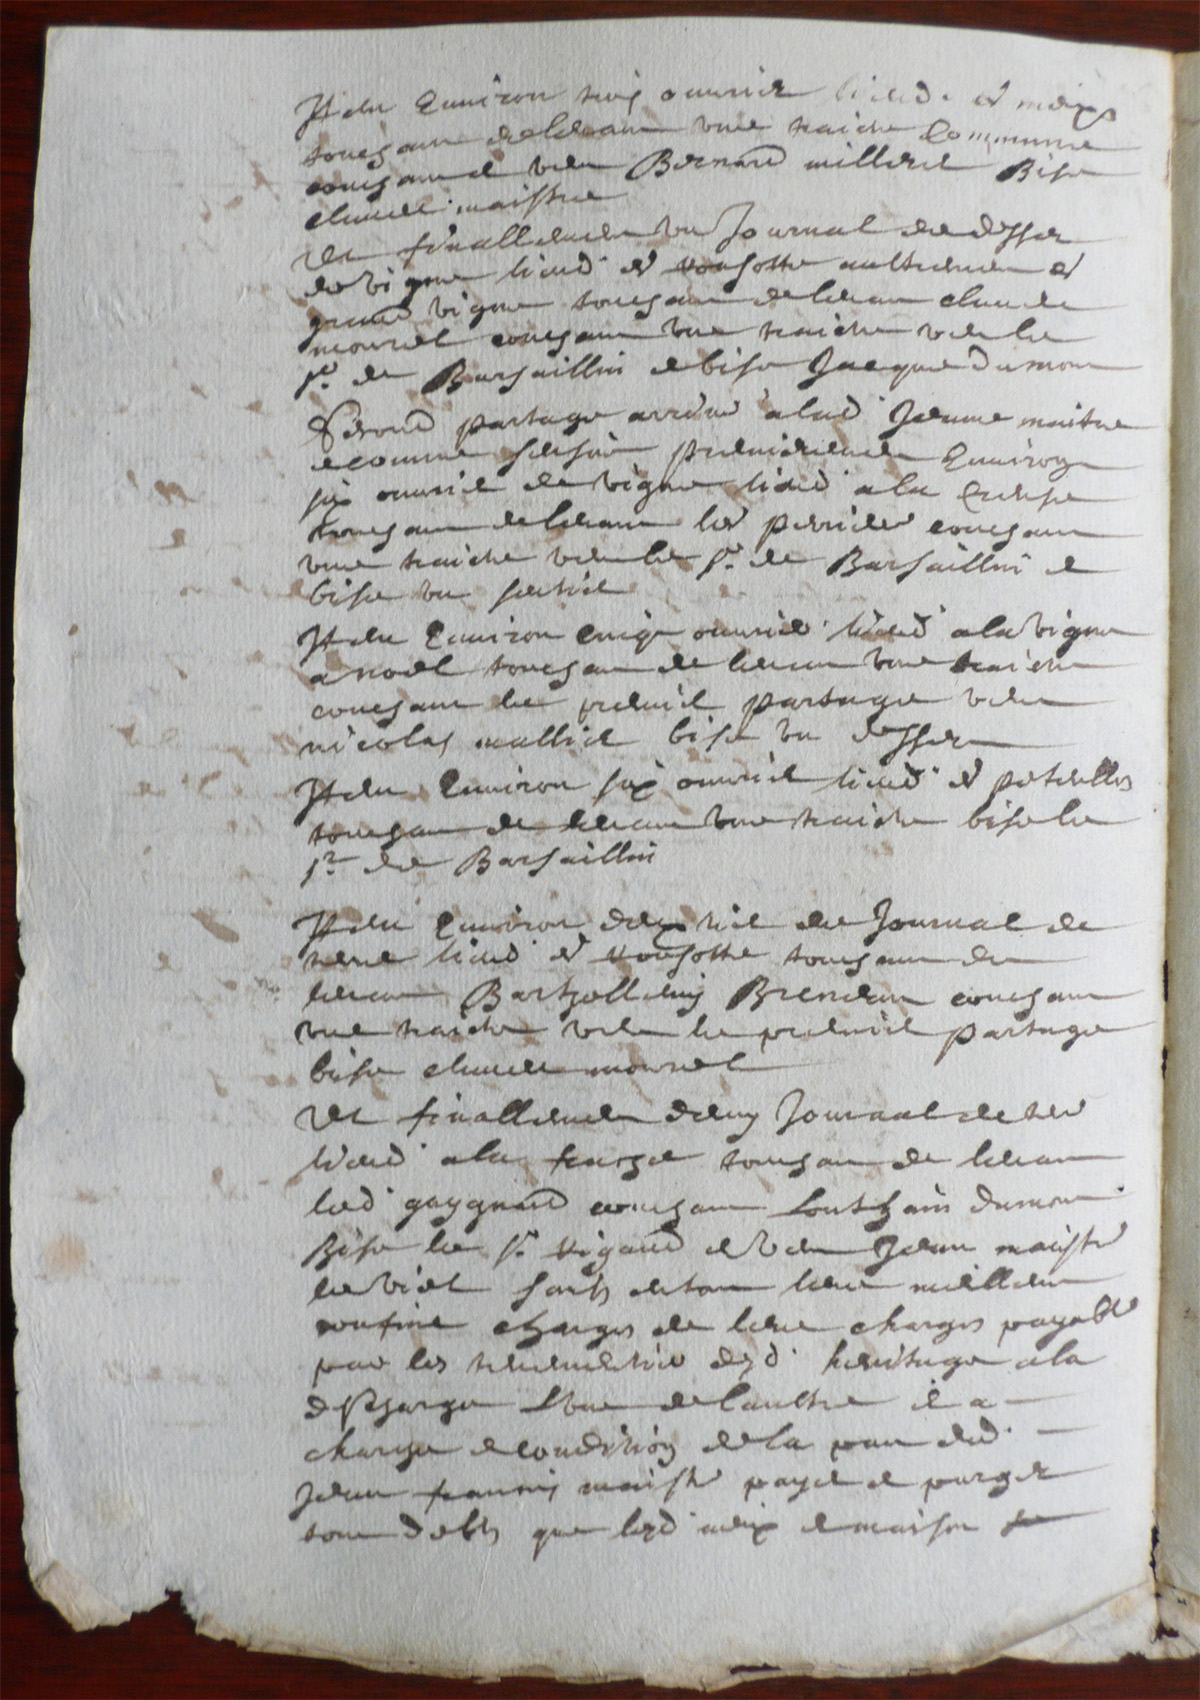 Item Environ trois ouvrier lieud. es meix
touchant de levant une traiche Commune
couchant et vent Bernard milleret Bise
claude maistre
Et finallement un Journal de desser
de vigne lieud. es vouhotte aultrement es
grand vigne touchant de levant claude
mourel couchant une traiche vent le
sr. de Barsaillin et bise Jacque Dumon
Second partage arrivé a lad. Jeanne maitre
et comme sensuit premierement Environ
six ouvrier de vigne lieud. a la Creuse
touchant de levant les perrier couchant
une traiche vent le sr. de Barsaillin et
bise un sentier
Item Environ cinq ouvrier lieud. a la vigne
a noel touchant de levant une traiche
couchant le premier partage vent
nicolas mallier bise un desser
Item Environ six ouvrier lieud. es
touchant de levant une traiche bise le
sr. de Barsaillin
Item Environ deux tier de Journal de
terre lieud. es vouhotte touchant de
levant Barthollemy couchant
une traiche vent le premier partage
bise claude mourel
Et finallement demy Journal de ter
lieud. a la touchant de levant
led. gaygnard couchant Dumon
Bise le sr. vigaud et vent Jean maistr
le viel sauf de tout leur meilleur
confine charges de leur charges payable
par les tenementier desd. heritage a la
descharge l'une de l'aultre et a
charge et condition de la part dud.
Jean francois maistr payer et purger
tout debts que lesd. meix et maison se